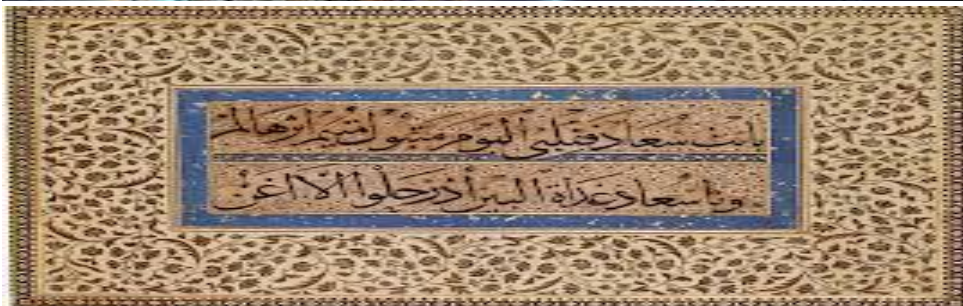 بانت سعاد فقلبي اليوم متبول متيم اثرها لم
وما سعاد غداة البين اذ رحلوا الا اغن